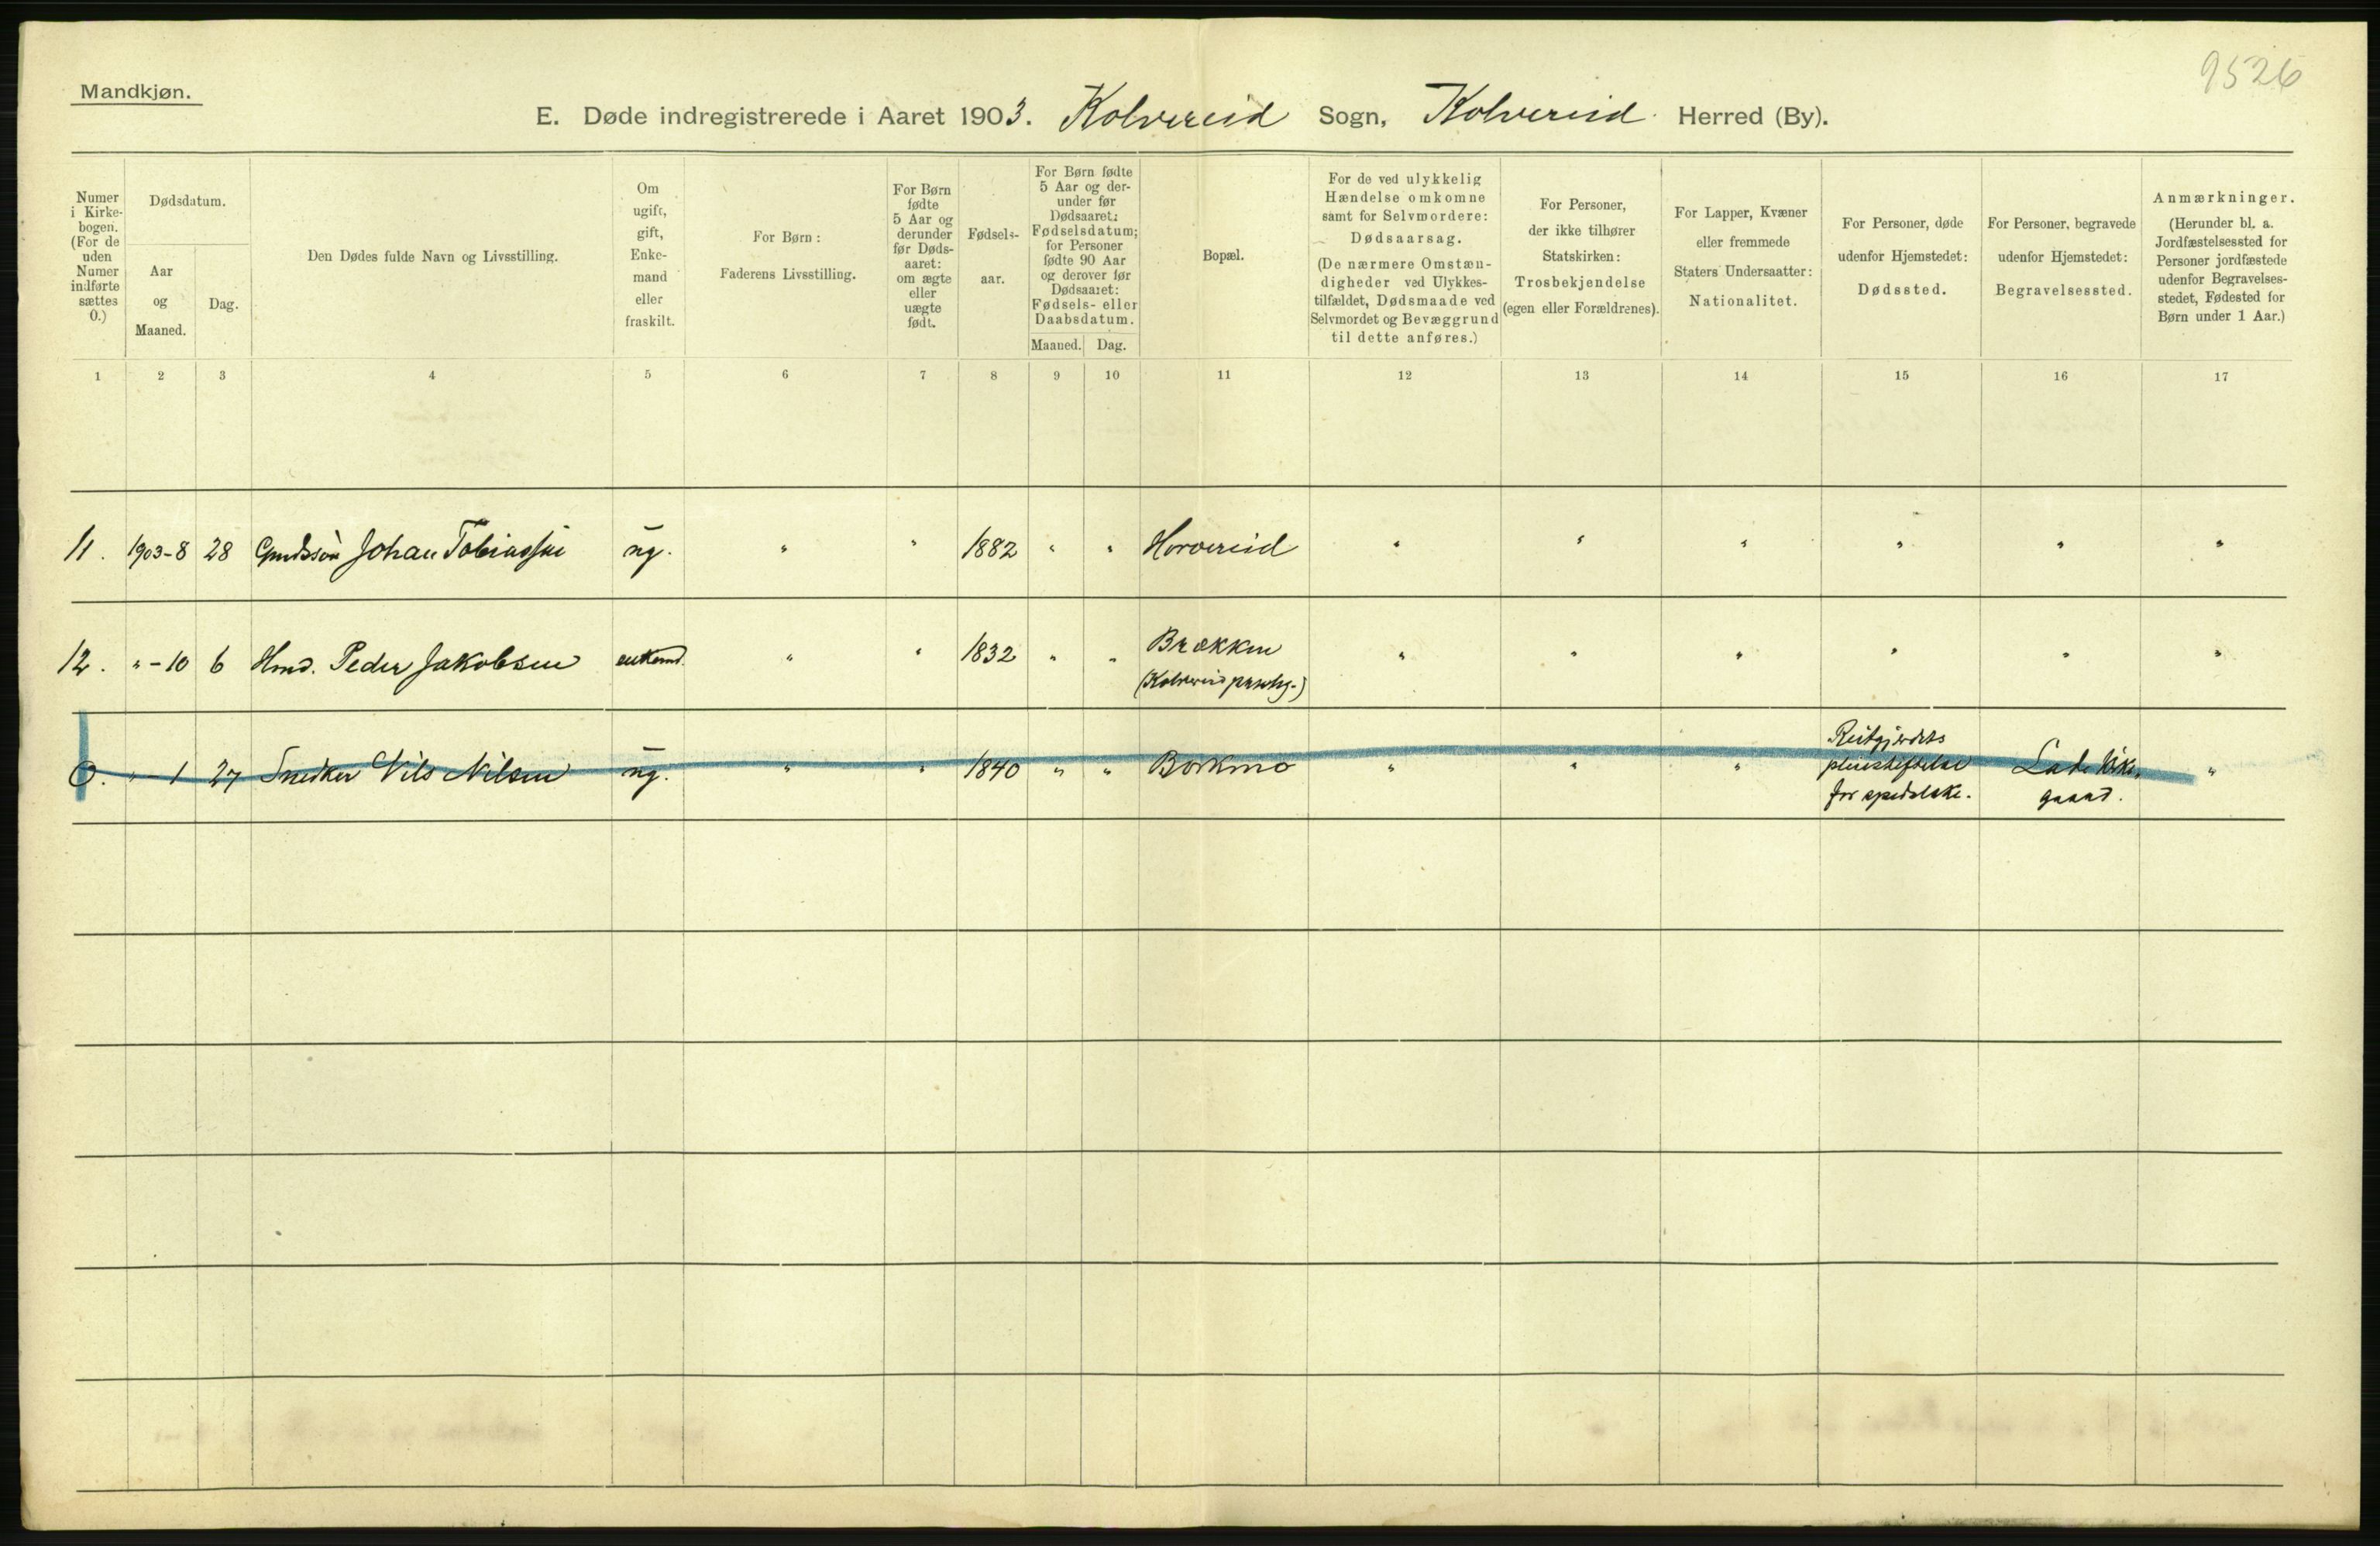 9526
Mandkjøn.
E. Døde indregistrerede i Aaret 1903. Kolvereid Sogn, Kolvereid Herred (By).
Numer i Kirkebogen. (For de uden Numer indførte sættes 0.)
Dødsdatum.
Aar og Maaned.
Dag.
Den Dødes fulde Navn og Livsstilling.
Om ugift, gift, Enkemand eller fraskilt.
For Børn: Faderens Livsstilling.
For Børn fødte 5 Aar og derunder før Dødsaaret: om ægte eller uægte født.
Fødselsaar.
For Børn fødte 5 Aar og derunder før Dødsaaret: Fødselsdatum; for Personer fødte 90 Aar og derover før Dødsaaret: Fødsels- eller Daabsdatum.
Maaned. Dag.
Bopæl.
For de ved ulykkelig Hændelse omkomne samt for Selvmordere: Dødsaarsag. (De nærmere Omstændigheder ved Ulykkestilfældet, Dødsmaade ved Selvmordet og Bevæggrund til dette anføres.)
For Personer, der ikke tilhører Statskirken: Trosbekjendelse (egen eller Forældrenes).
For Lapper, Kvæner eller fremmede Staters Undersaatter: Nationalitet.
For Personer, døde udenfor Hjemstedet: Dødssted.
For Personer, begravede udenfor Hjemstedet: Begravelsessted.
Anmærkninger. (Herunder bl. a. Jordfæstelsessted for Personer jordfæstede udenfor Begravelsesstedet, Fødested for Børn under 1 Aar.)
1 2 3 4 5 6 7 8 9 10 11 12 13 14 15 16 17
11. 1903-8 28 Gmdssøn Johan Tobiassen ug. " " 1882 " " Horvereid " " " " " "
12. "-10 6 Hmd. Peder Jakobsen enkemd. " " 1832 " " Brækken " " " " " "
(Kolvereid prestg.)
0. "-1 27 Snedker Nils Nilsen ug. " " 1840 " " Borkmo " " " Reitgjerdets pleiestiftelse for spedalske. Lade kirkegaard. "